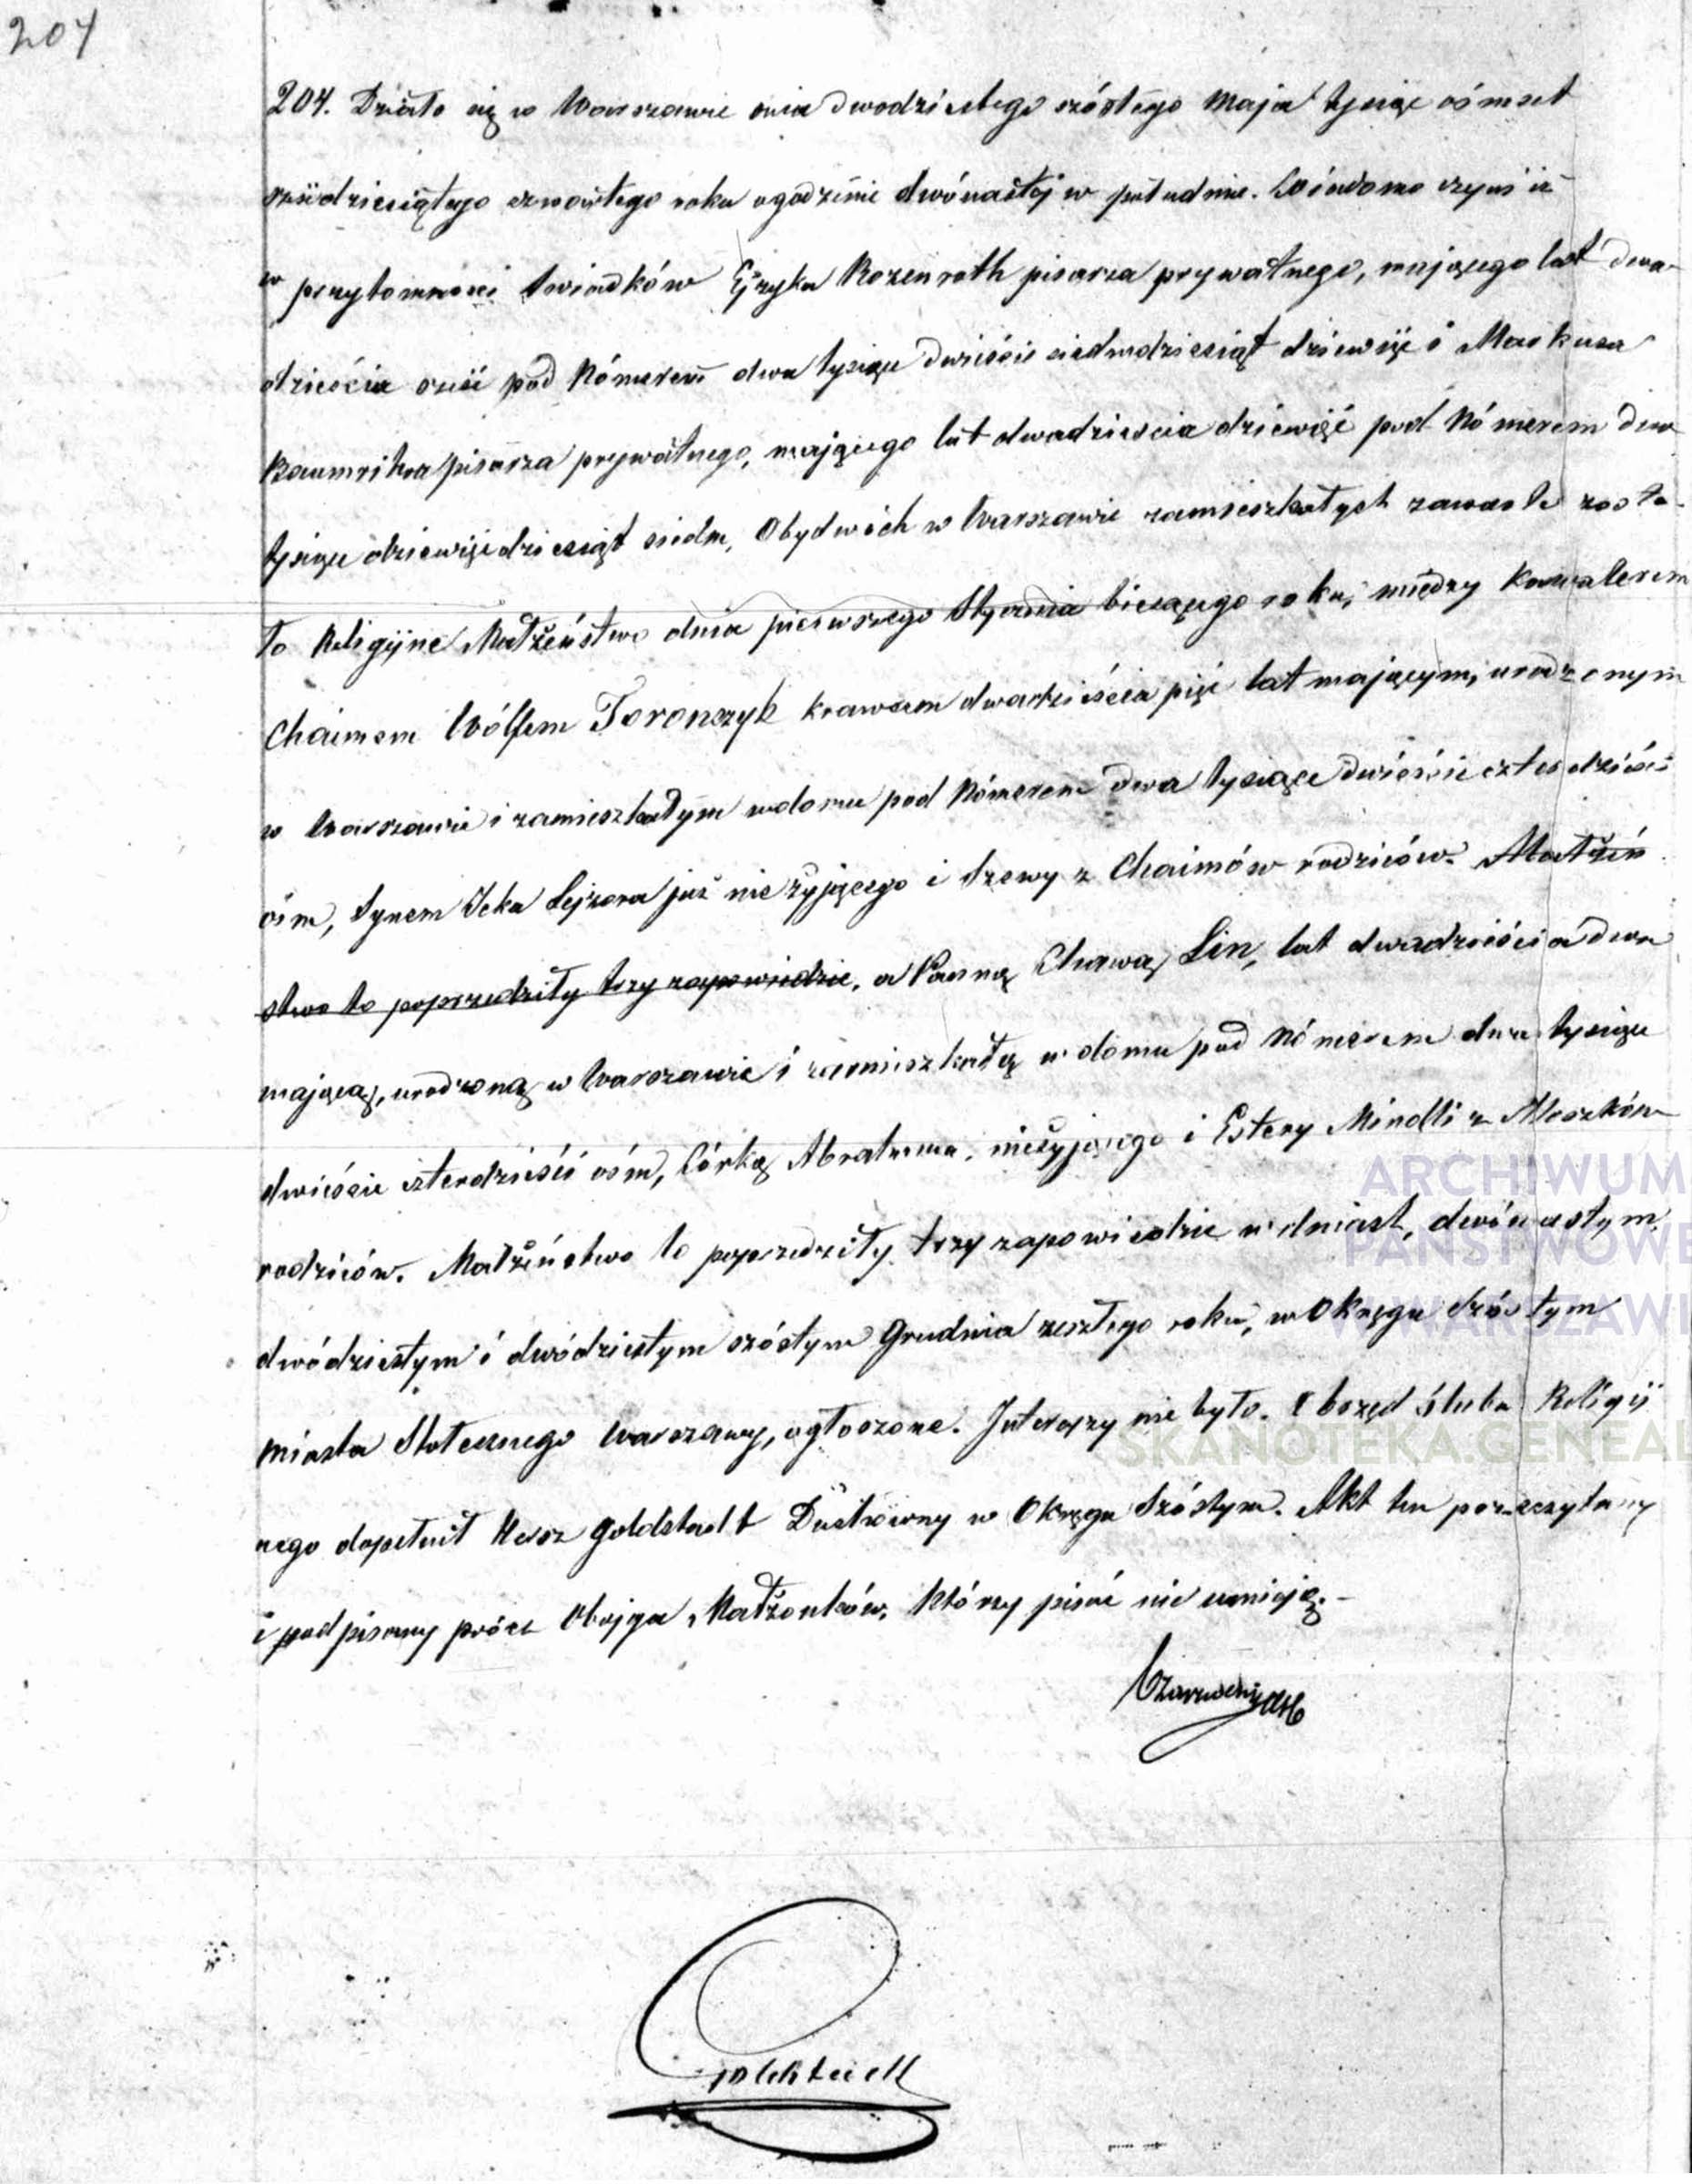 204
204. Działo się w Warszawie dnia dwudziestego szóstego Maja tysiąc ośmset
sześćdziesiątego czwartego roku o godzinie dwónastej w południe. Wiadomo czyni iż
w przytomności Świadków Ejzyka Rozenroth pisarza prywatnego, mającego lat dwa-
dzieścia sześć pod Nómerem dwa tysiące dwieście siedmdziesiąt dziewięć i Markusa
Baumritra pisarza prywatnego, mającego lat dwadzieścia dziewięć pod Nómerem dwa
tysiące dziewięćdziesiąt siedm, Obydwóch w Warszawie zamieszkałych zawarte zosta-
ło Religijne Małżeństwo dnia pierwszego Stycznia bieżącego roku, między Kawalerem
Chaimem Wólfem Toronczyk krawcem dwadzieścia pięć lat mającym, urodzonym
w Warszawie i zamieszkałym w domu pod Nómerem dwa tysiące dwieście czterdzieści
ośm, Synem Icka Lejzora już nie żyjącego i Szewy z Chaimów rodziców. Małżeń
stwo to poprzedziły trzy zapowiedzie, a Panną Chawą Lin, lat dwadzieścia dwa
mającą, urodzoną w Warszawie i zamieszkałą w domu pod Nómerem dwa tysiące
dwieście czterdzieści ośm, Córką Abrahama, nieżyjącego i Estery Mindli z Moszków
rodziców. Małżeństwo to poprzedziły trzy zapowiedzie w dniach, dwónastym
dwódziestym i dwódziestym szóstym Grudnia zeszłego roku, w Okręgu Szóstym
miasta Stołecznego Warszawy, ogłoszone. Interczyzy nie było. Obrzęd ślubu Religij
nego dopełnił Hersz Goldstadt Duchowny w Okręgu Szóstym. Akt ten przeczytany
i podpisany prócz Obojga Małżonków, którzy pisać nie umieją. -
ARCHIWUM
PAŃSTWOWE
W WARSZAWI
SKANOTEKA.GENEAL